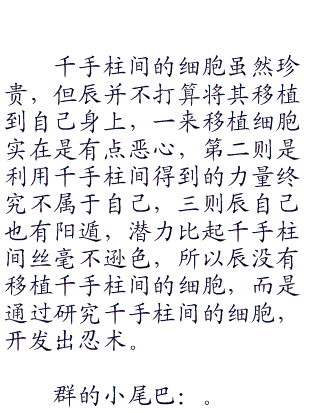 千手柱间的细胞虽然珍
贵，但辰并不打算将其移植
到自己身上，一来移植细胞
实在是有点恶心，第二则是
利用千手柱间得到的力量终
究不属于自己，三则辰自己
也有阳遁，潜力比起千手柱
间丝毫不逊色，所以辰没有
移植千手柱间的细胞，而是
通过研究千手柱间的细胞，
开发出忍术。
群的小尾巴：。